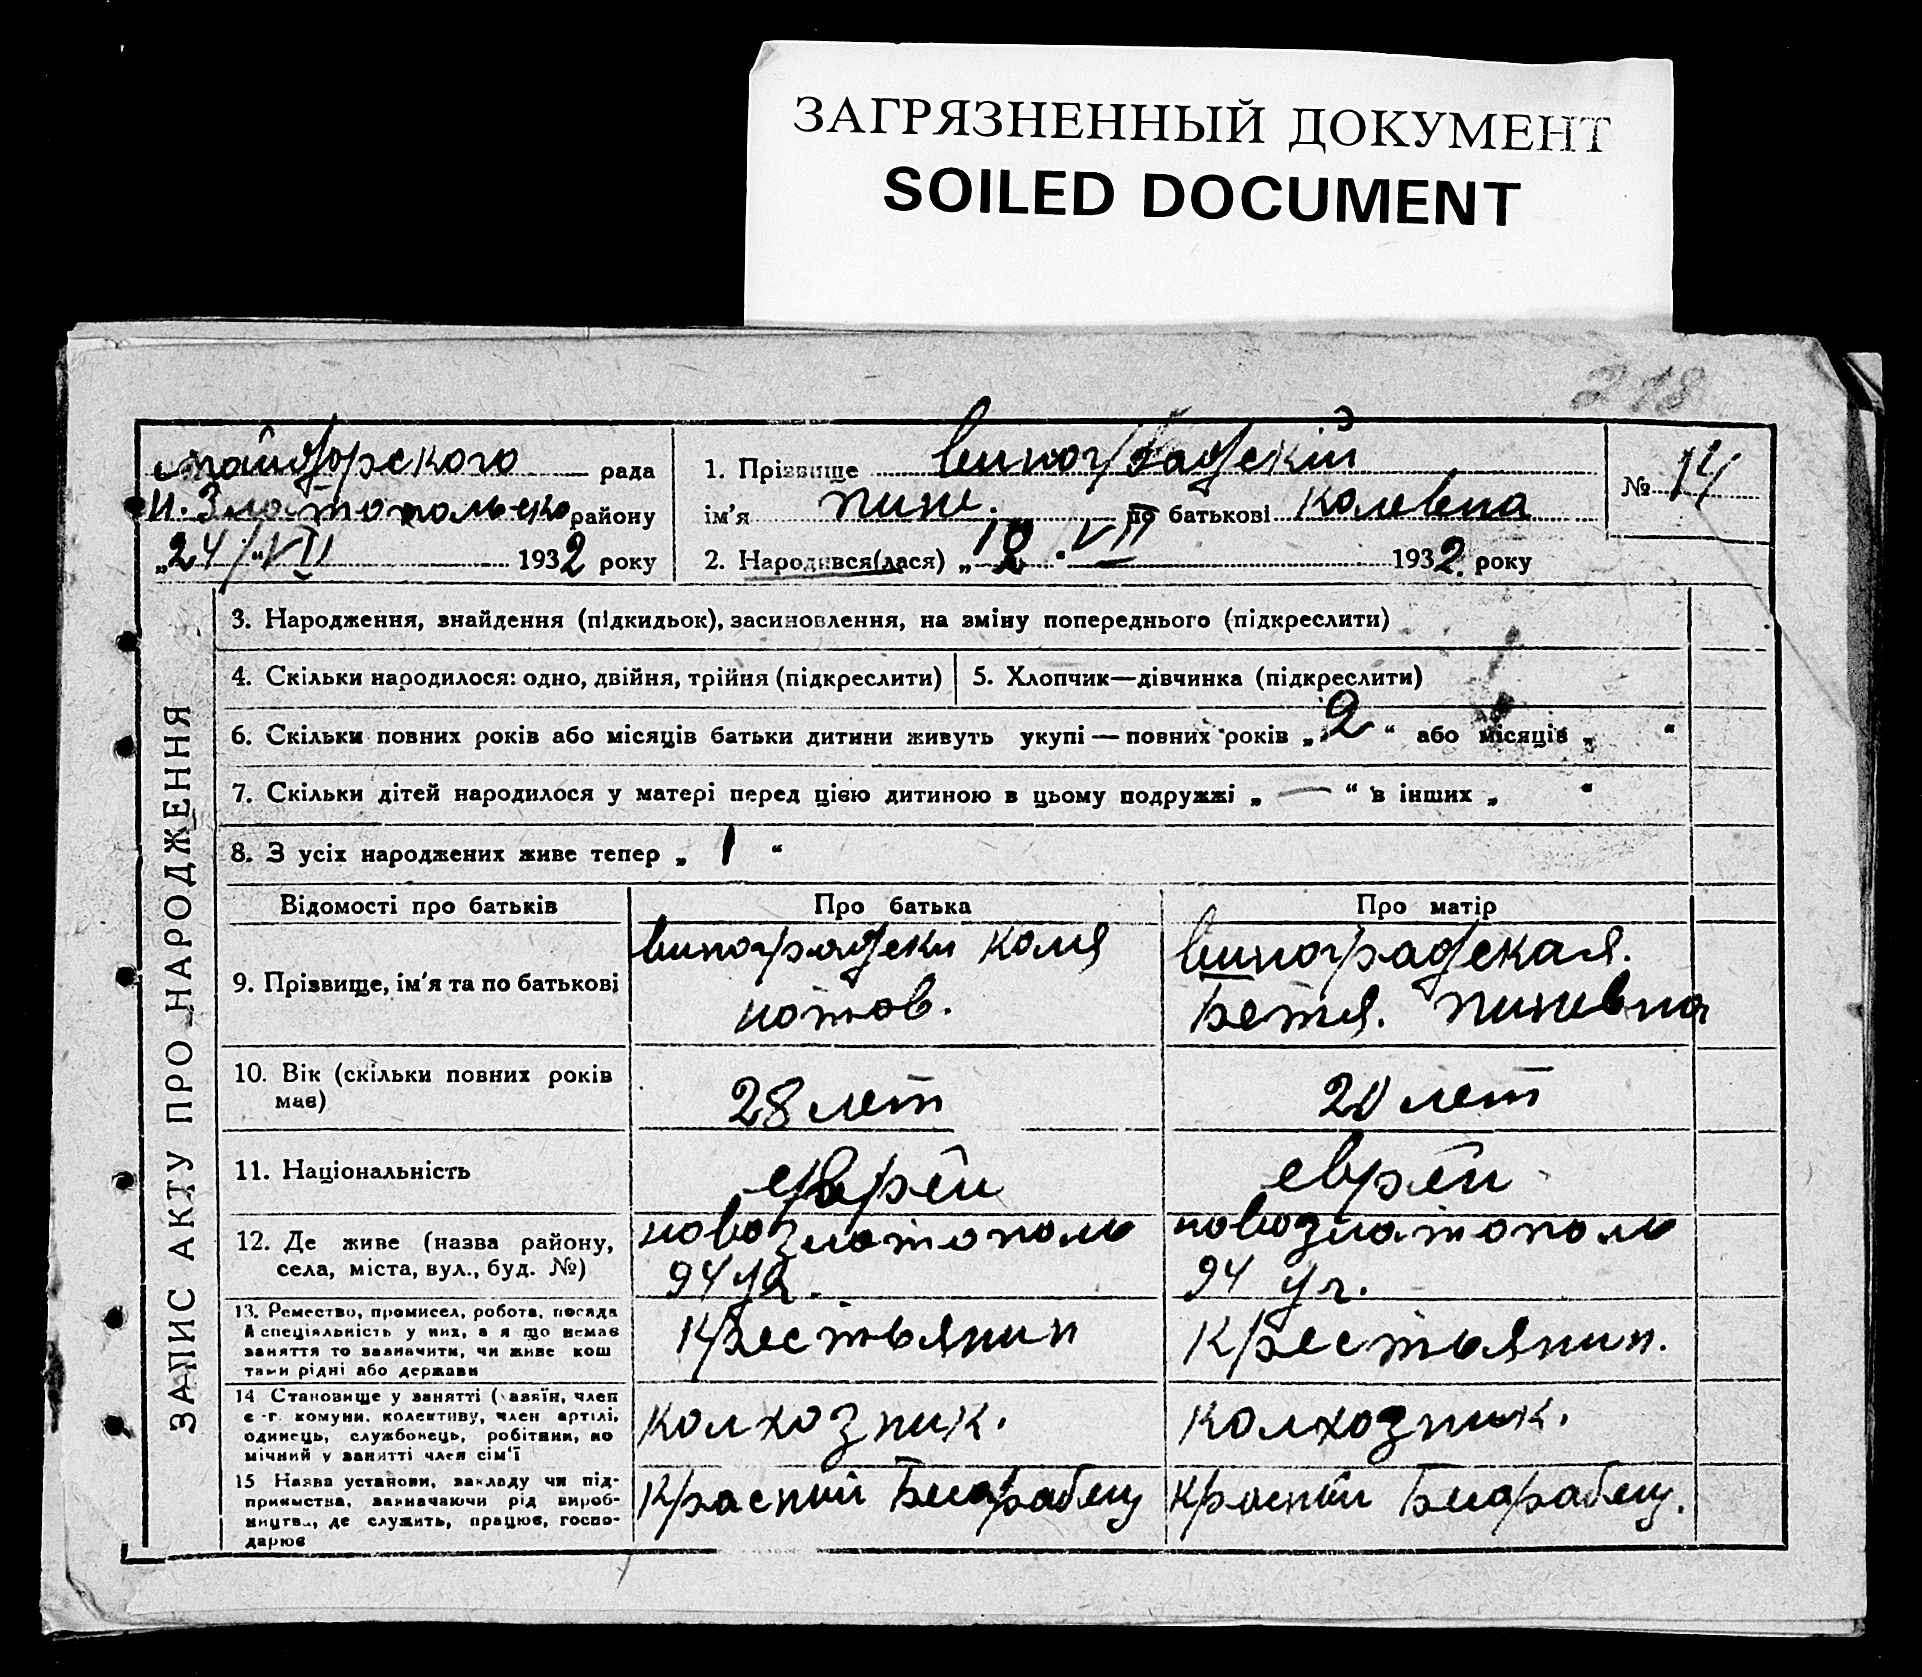 ЗАГРЯЗНЕННЫЙ ДОКУМЕНТ
SOILED DOCUMENT
218
рада
н. Златопольско району
„24/VII 1932 року
1. Прізвище виноградскій
ім'я пине. по батькові колевна
2. Народився(лася) „ VII 1932. року
№ 14
ЗАПИС АКТУ ПРО НАРОДЖЕННЯ
3. Народження, знайдення (підкидьок), засиновлення, на зміну попереднього (підкреслити)
4. Скільки народилося: одно, двійня, трійня (підкреслити)
5. Хлопчик—дівчинка (підкреслити)
6. Скільки повних років або місяців батьки дитини живуть укупі — повних років „ 2 “ або місяців „ “
7. Скільки дітей народилося у матері перед цією дитиною в цьому подружжі „ — “ в інших „ “
8. З усіх народжених живе тепер „ 1 “
Відомості про батьків
Про батька
Про матір
9. Прізвище, ім'я та по батькові
виноградски коля
нотов.
виноградская.
Бетя. пиневна
10. Вік (скільки повних років
має)
28 лет
20 лет
11. Національність
еврей
еврей
12. Де живе (назва району,
села, міста, вул., буд. №)
новозлатополь
94 уч.
новозлатополь
94 уч.
13. Ремество, промисел, робота, посада
й спеціяльність у них, а я що немає
заняття то зазначити, чи живе кош
тами рідні або держави
Крестьянин
Крестьянин.
14 Становище у занятті (хазяїн, член
с-г. комуни, колективу, член артілі,
одинець, службовець, робітник, по
мічний у занятті член сім'ї
колхозник.
колхозник.
15 Назва установи, закладу чи під-
приємства, зазначаючи рід вироб-
ництва, де служить, працює, госпо-
дарює
Красный
Красный